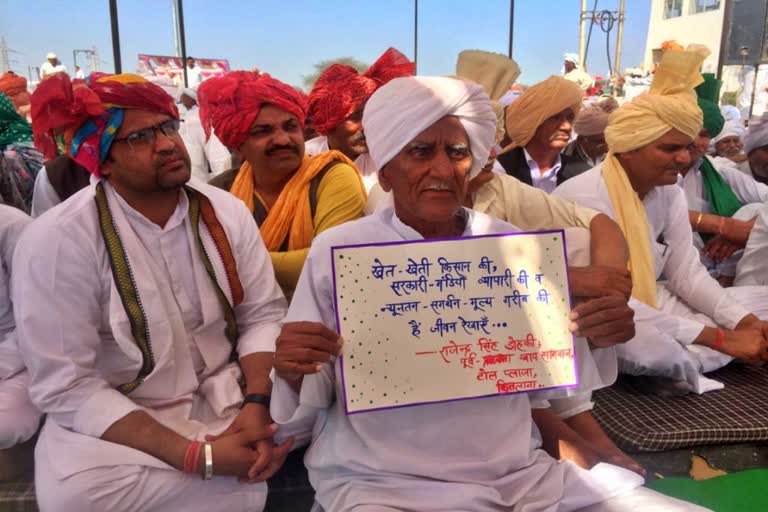 खेत - खेती किसान की,
सरकारी - मंडियाँ व्यापारी की व
न्यूनतम - समर्थन - मूल्य गरीब की
हैं जीवन रेखाएँ...
— राजेन्द्र सिंह डोहकी;
पूर्व खाप सांगवान,
टोल प्लाजा,
कितलाना..